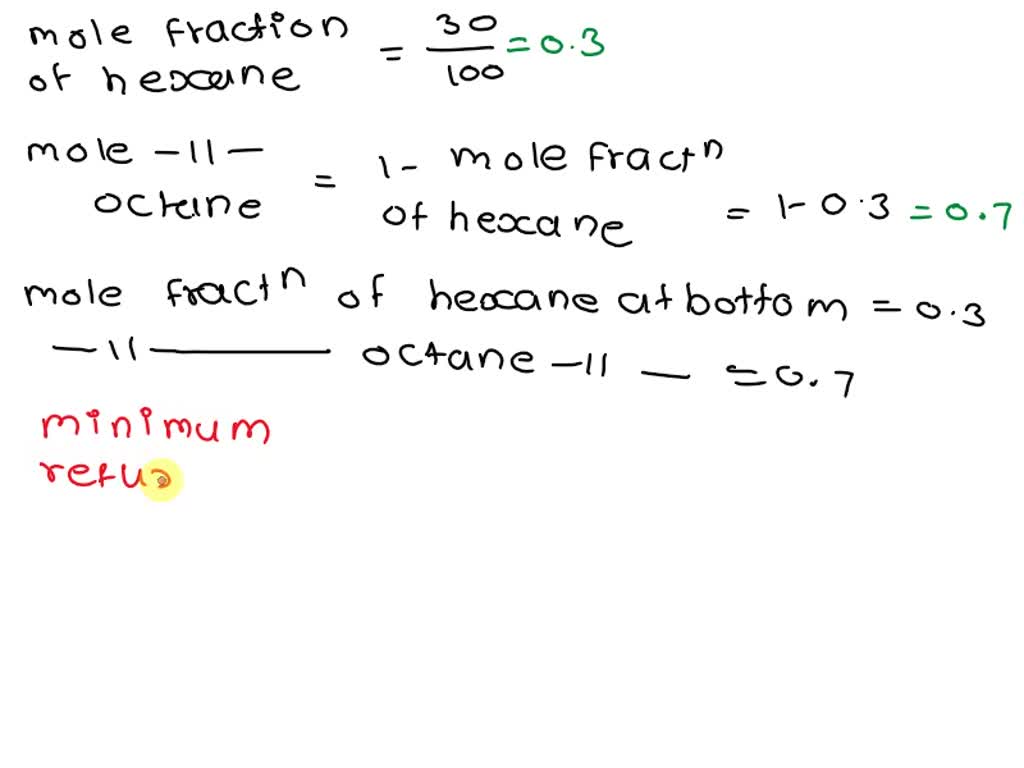 mole fraction of hexane = 30/100 = 0.3
mole -11- octane = 1- mole fractn of hexane = 1- 0.3 = 0.7
mole fractn of hexane at bottom = 0.3
-11- octane -11- = 0.7
minimum
refu